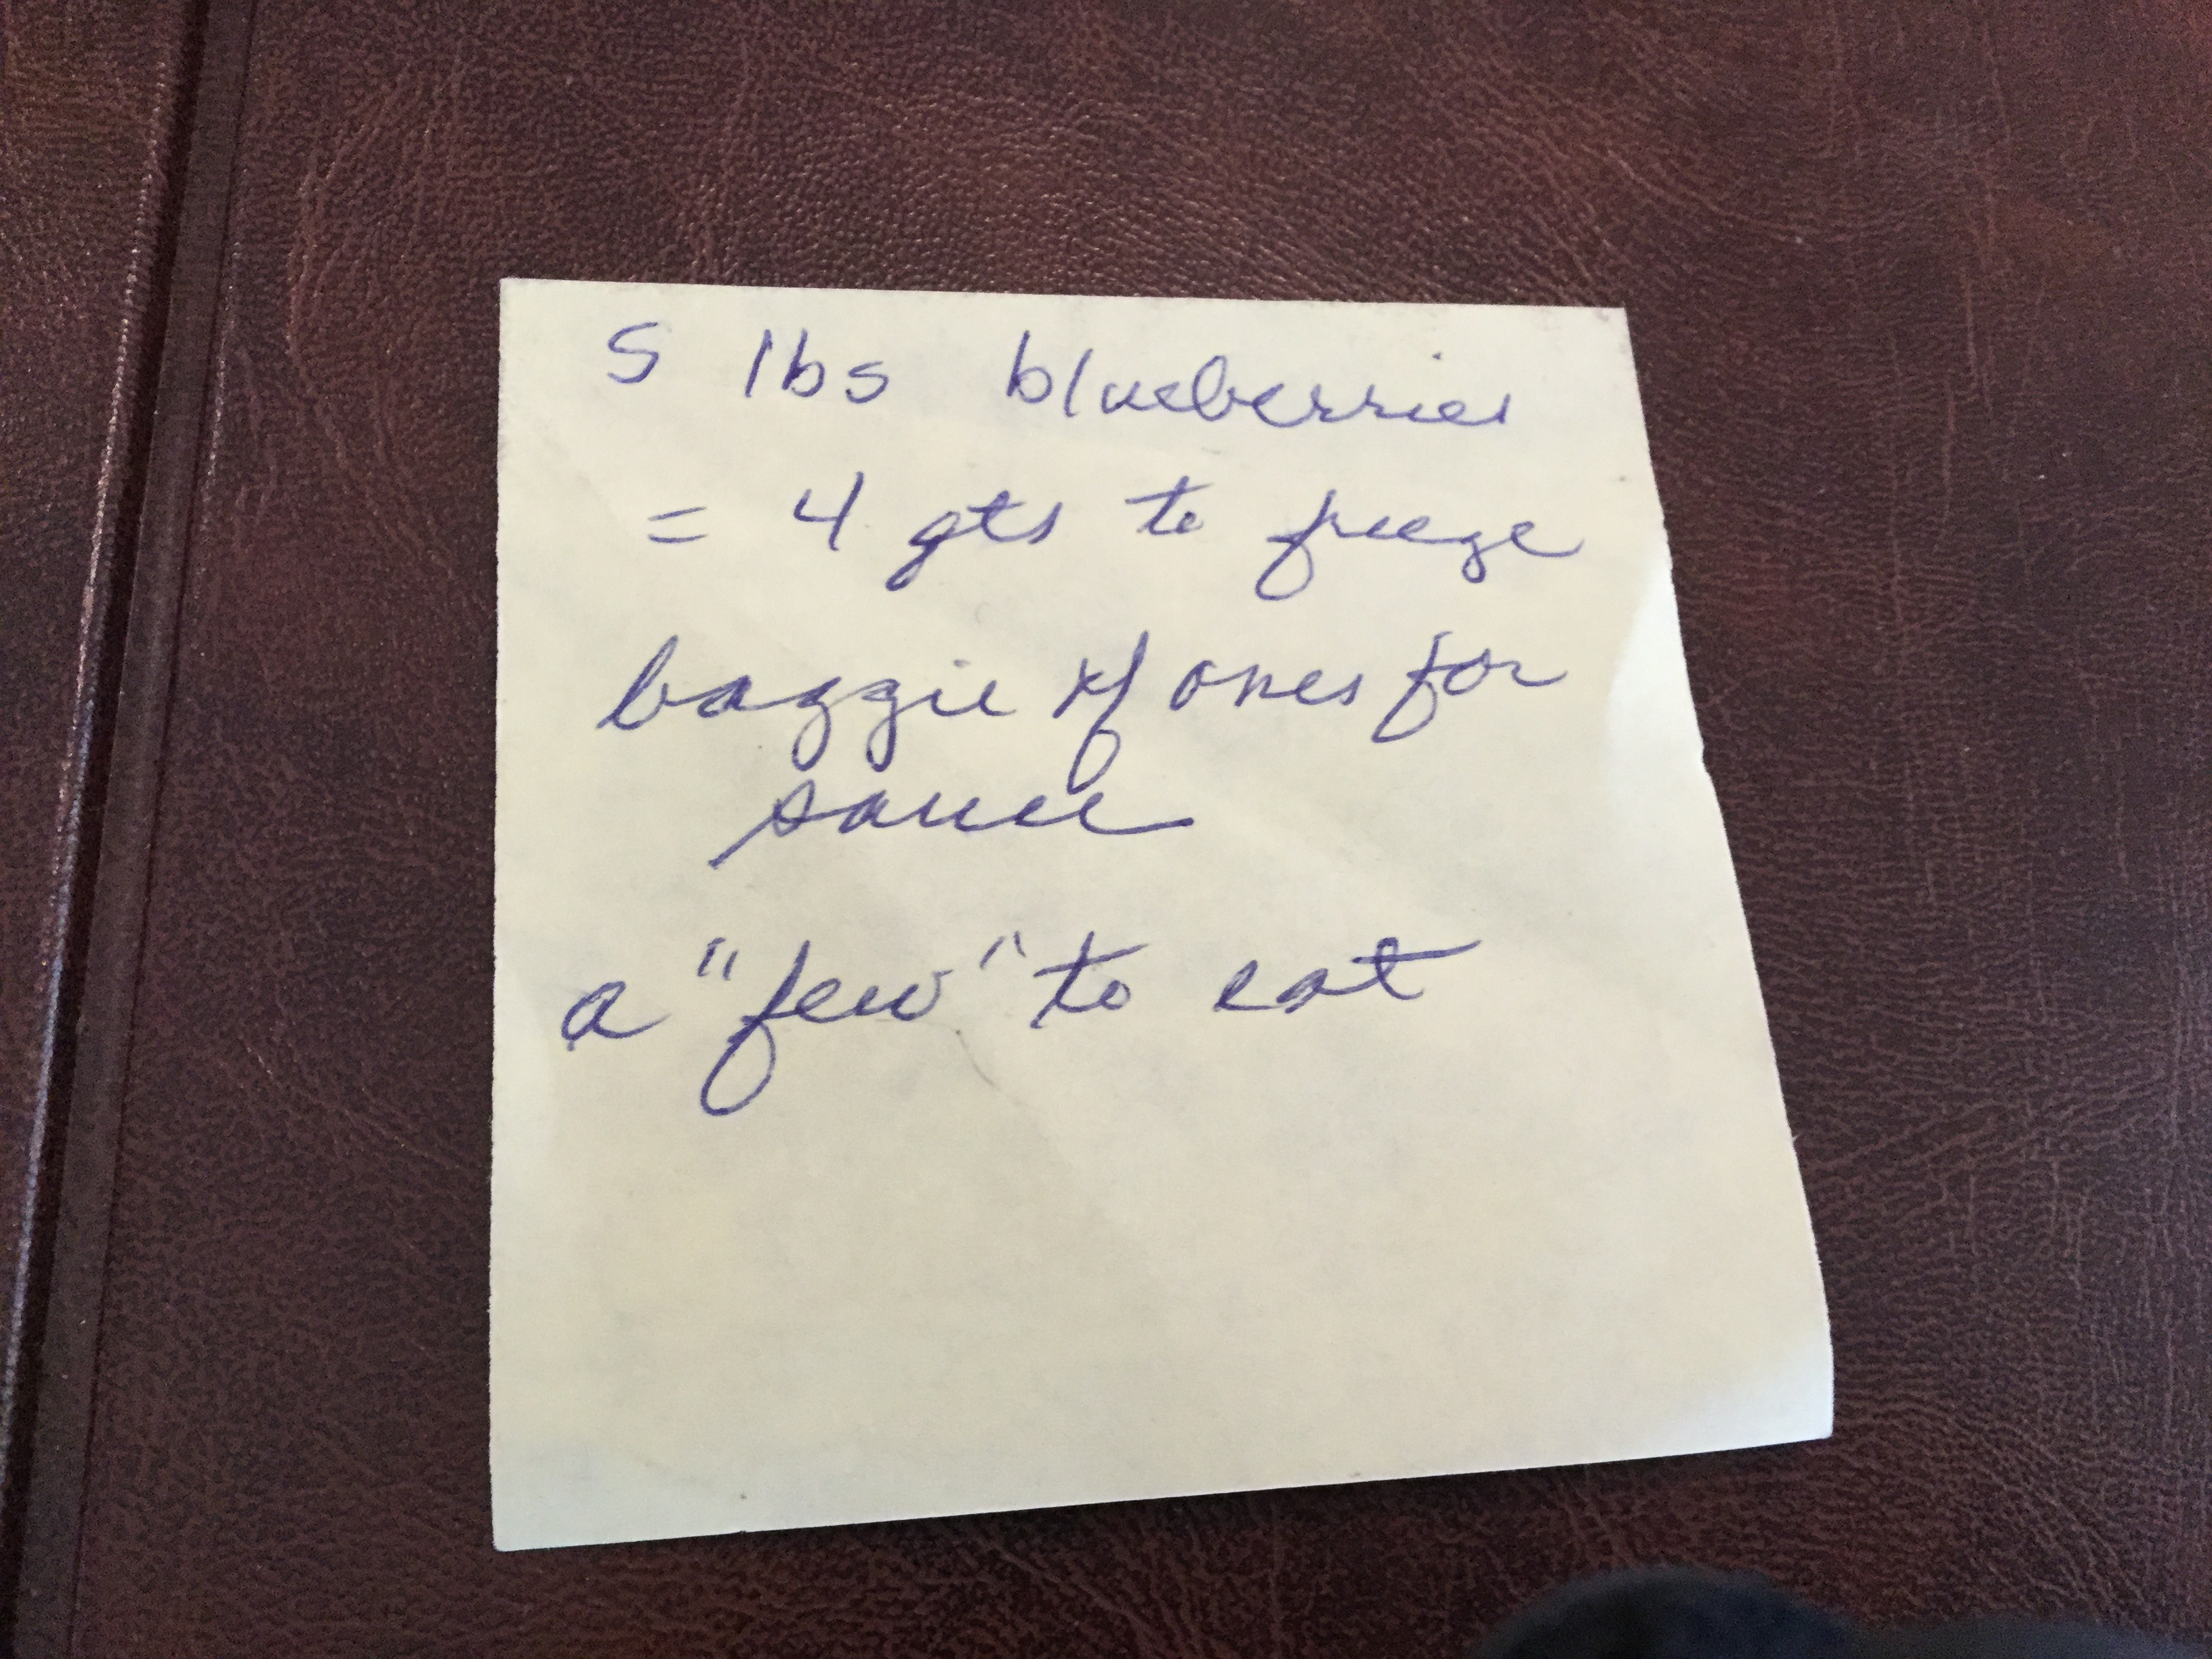 5 lbs blueberries
= 4 qts to freeze
baggie of ones for
sauce
a "few" to eat